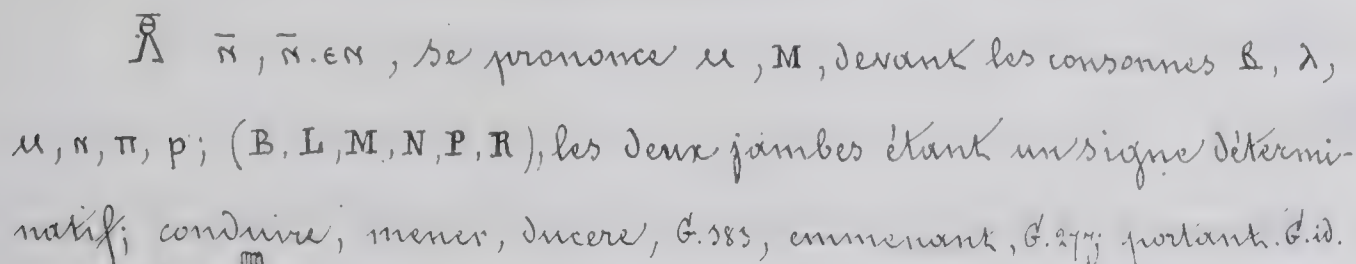 ⲛ̄, ⲛ̄.ⲉⲛ, se prononce ⲙ, M, devant les consonnes ⲃ, ⲗ,
ⲙ, ⲛ, ⲡ, ⲣ; (B, L, M, N, P, R), les deux jambes étant un signe détermi-
natif; conduire, mener, ducere, G. 383, emmenant, G. 277; portant. G. id.